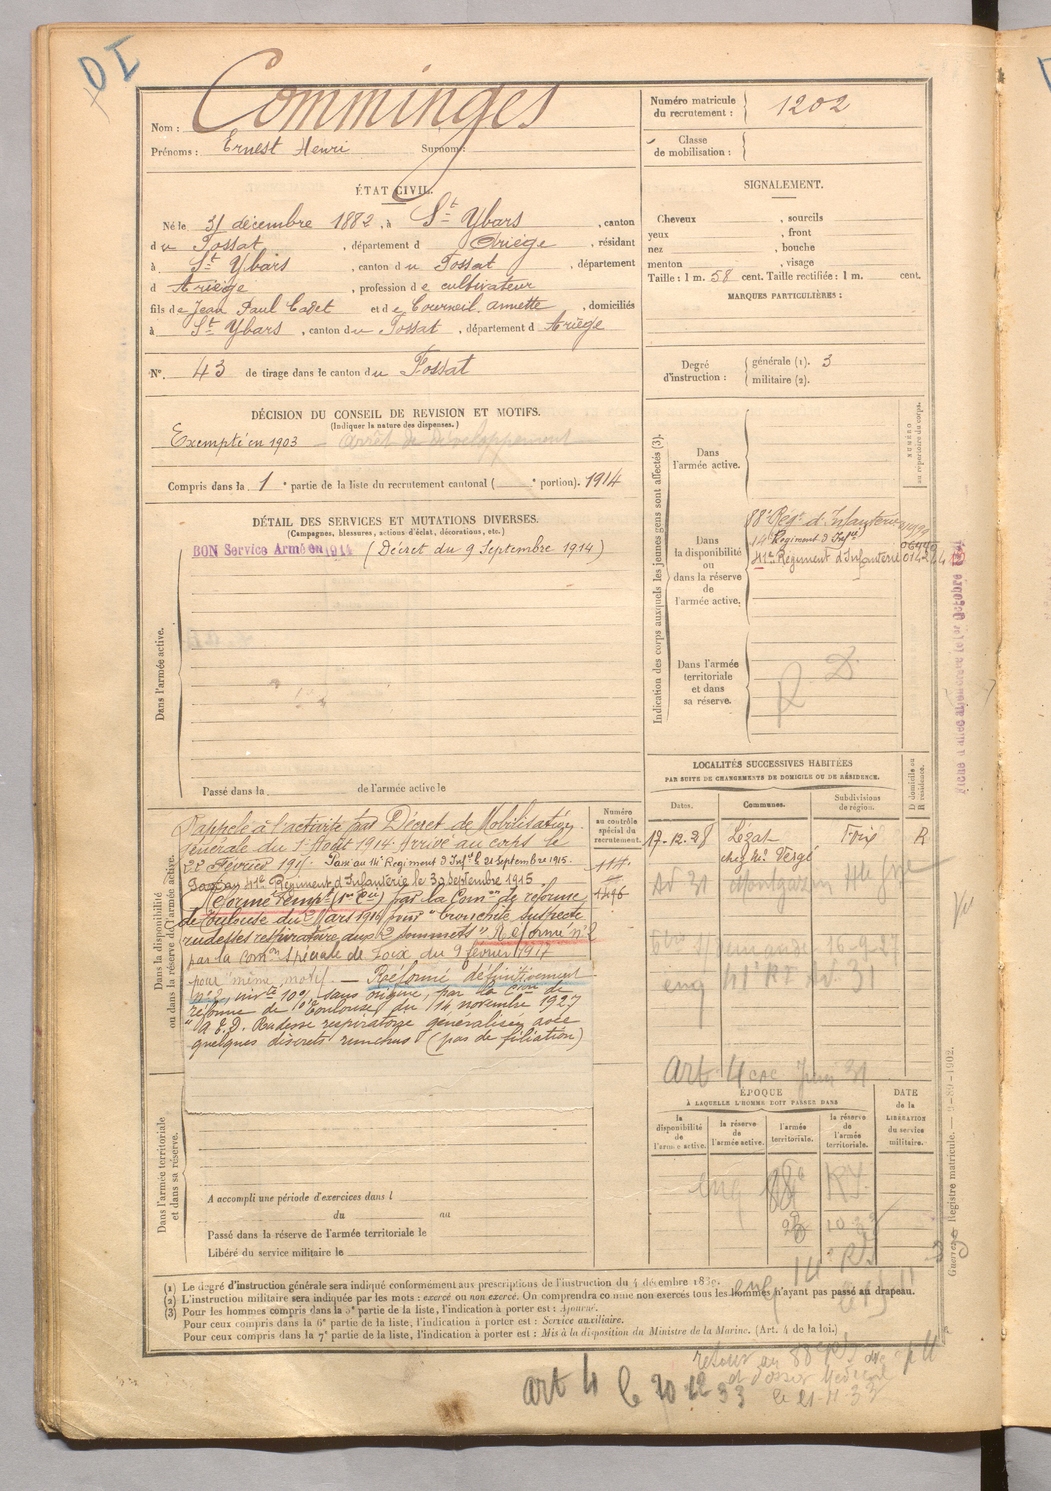 Nom : Comminges
Prénoms : Ernest Henri Surnom :
Numéro matricule du recrutement : 1202
Classe de mobilisation :
ÉTAT CIVIL.
Né le 31 décembre 1882, à St Ybars, canton
du Fossat, département d Ariège, résidant
à St Ybars, canton du Fossat, département
d Ariège, profession de cultivateur
fils de Jean Paul Cadet et de Courneil annette, domiciliés
à St Ybars, canton du Fossat, département d Ariège
N°. 43 de tirage dans le canton du Fossat
SIGNALEMENT.
Cheveux , sourcils
yeux , front
nez , bouche
menton , visage
Taille : 1 m. 58 cent. Taille rectifiée : 1 m. cent.
MARQUES PARTICULIÈRES :
Degré d'instruction : générale (1). 3
militaire (2).
DÉCISION DU CONSEIL DE REVISION ET MOTIFS.
(Indiquer la nature des dispenses.)
Exempté en 1903 – arrêt de développement
Compris dans la 1e partie de la liste du recrutement cantonal ( e portion). 1914
DÉTAIL DES SERVICES ET MUTATIONS DIVERSES.
(Campagnes, blessures, actions d'éclat, décorations, etc.)
BON Service Armé en 1914 (Décret du 9 Septembre 1914)
Dans l'armée active.
Passé dans la de l'armée active le
Indication des corps auxquels les jeunes gens sont affectés (3).
NUMÉRO au répertoire du corps.
Dans l'armée active.
Dans la disponibilité ou dans la réserve de l'armée active.
88e Régt d'Infanterie
14e Régiment d'Infie
41e Régiment d'Infanterie
Dans l'armée territoriale et dans sa réserve.
R. D.
Dans la disponibilité ou dans la réserve de l'armée active.
Rappelé à l'activité par Décret de Mobilisation
générale du 1er Août 1914. Arrivé au corps le
22 Février 1915. Passé au 14e Régiment d'Infie le 21 Septembre 1915.
Passé au 41e Régiment d'Infanterie le 30 Septembre 1915
Réformé Tempre (1re Cie) par la Comon de réforme
de Toulouse du Mars 1916 pour "bronchite suspecte
rudesses respiratoire aux 2 sommets" Réformé n° 2
par la Comon Spéciale de Foix du 9 février 1917
pour "même motif". — Réformé définitivement
n° 2, invté 10% sans origine, par la Cion de
réforme de Toulouse, du 14 novembre 1927
"A.E.D. Rudesse respiratoire généralisée avec
quelques discrets ronchus" (pas de filiation)
Numéro au contrôle spécial du recrutement.
114
1496
LOCALITÉS SUCCESSIVES HABITÉES
PAR SUITE DE CHANGEMENTS DE DOMICILE OU DE RÉSIDENCE.
Dates. Communes. Subdivisions de région. D domicile ou R résidence.
17.12.28 Lézat Foix R
chez Mr. Vergé
Montgazin Hte Gne
art 4
Dans l'armée territoriale et dans sa réserve.
A accompli une période d'exercices dans l
du au
Passé dans la réserve de l'armée territoriale le
Libéré du service militaire le
ÉPOQUE
À LAQUELLE L'HOMME DOIT PASSER DANS
la disponibilité de l'armée active.
la réserve de l'armée active.
l'armée territoriale.
la réserve de l'armée territoriale.
DATE de la LIBÉRATION du service militaire.
Registre matricule. — 9-89-1902.
(1) Le degré d'instruction générale sera indiqué conformément aux prescriptions de l'instruction du 4 décembre 1889.
(2) L'instruction militaire sera indiquée par les mots : exercé ou non exercé. On comprendra comme non exercés tous les hommes n'ayant pas passé au drapeau.
(3) Pour les hommes compris dans la 5e partie de la liste, l'indication à porter est : Ajourné.
Pour ceux compris dans la 6e partie de la liste, l'indication à porter est : Service auxiliaire.
Pour ceux compris dans la 7e partie de la liste, l'indication à porter est : Mis à la disposition du Ministre de la Marine. (Art. 4 de la loi.)
art 4 le 20 12 33
le 21-11-33